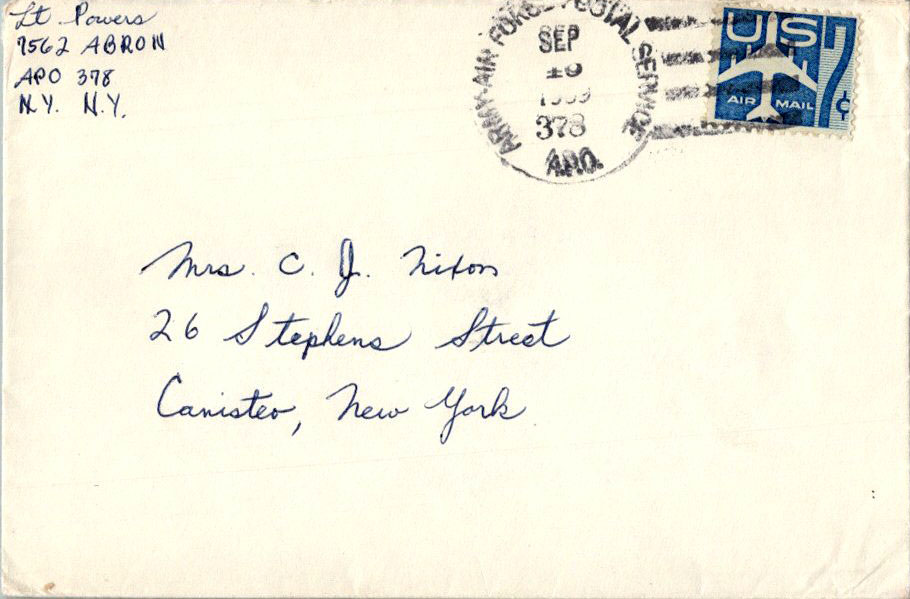 Lt Powers
7562 ABRON
APO 378
N.Y. N.Y.
ARMY-AIR FORCE POSTAL SERVICE
SEP
1959
378
A.P.O.
US
AIR MAIL
7¢
Mrs. C. J. Nixon
26 Stephens Street
Canisteo, New York